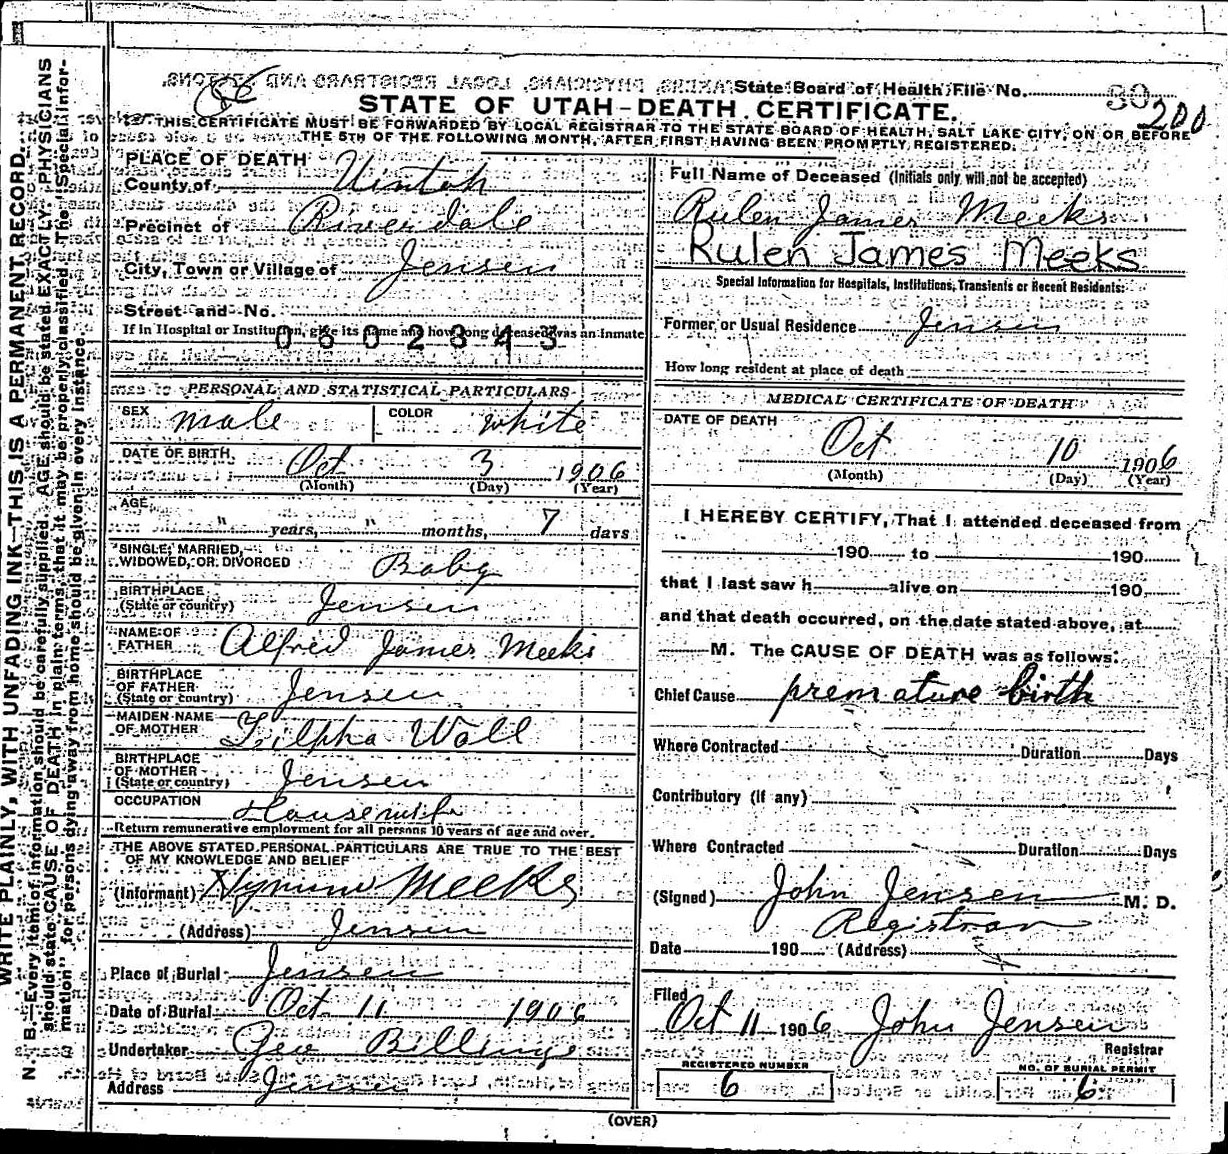 State Board of Health File No. 30
200
86
STATE OF UTAH-DEATH CERTIFICATE.
THIS CERTIFICATE MUST BE FORWARDED BY LOCAL REGISTRAR TO THE STATE BOARD OF HEALTH, SALT LAKE CITY, ON OR BEFORE
THE 5TH OF THE FOLLOWING MONTH, AFTER FIRST HAVING BEEN PROMPTLY REGISTERED.
PLACE OF DEATH
County of Uintah
Precinct of Riverdale
City, Town or Village of Jensen
Street and No.
If in Hospital or Institution, give its name and how long deceased was an Inmate
0602343
PERSONAL AND STATISTICAL PARTICULARS
SEX male COLOR white
DATE OF BIRTH Oct 3 1906
(Month) (Day) (Year)
AGE
" years, " months, 7 days
SINGLE, MARRIED,
WIDOWED, OR DIVORCED Baby
BIRTHPLACE
(State or country) Jensen
NAME OF
FATHER Alfred James Meeks
BIRTHPLACE
OF FATHER
(State or country) Jensen
MAIDEN NAME
OF MOTHER Wall
BIRTHPLACE
OF MOTHER
(State or country) Jensen
OCCUPATION Housewife
Return remunerative employment for all persons 10 years of age and over.
THE ABOVE STATED PERSONAL PARTICULARS ARE TRUE TO THE BEST
OF MY KNOWLEDGE AND BELIEF
(Informant) Meeks
(Address) Jensen
Place of Burial Jensen
Date of Burial Oct 11 1906
Undertaker Geo Billings
Address Jensen
Full Name of Deceased (Initials only will not be accepted)
Rulen James Meeks
Rulen James Meeks
Special Information for Hospitals, Institutions, Transients or Recent Residents:
Former or Usual Residence Jensen
How long resident at place of death
MEDICAL CERTIFICATE OF DEATH
DATE OF DEATH
Oct 10 1906
(Month) (Day) (Year)
I HEREBY CERTIFY, That I attended deceased from
190 to 190
that I last saw h alive on 190
and that death occurred, on the date stated above, at
M. The CAUSE OF DEATH was as follows:
Chief Cause premature birth
Where Contracted Duration Days
Contributory (if any)
Where Contracted Duration Days
(Signed) John Jensen M. D.
Registrar
Date 190 (Address)
Filed
Oct 11 1906 John Jensen
Registrar
REGISTERED NUMBER
6
NO. OF BURIAL PERMIT
6
(OVER)
WRITE PLAINLY, WITH UNFADING INK—THIS IS A PERMANENT RECORD.
N. B.—Every item of information should be carefully supplied. AGE should be stated EXACTLY. PHYSICIANS
should state CAUSE OF DEATH in plain terms, that it may be properly classified. The "Special Infor-
mation" for persons dying away from home should be given in every instance.